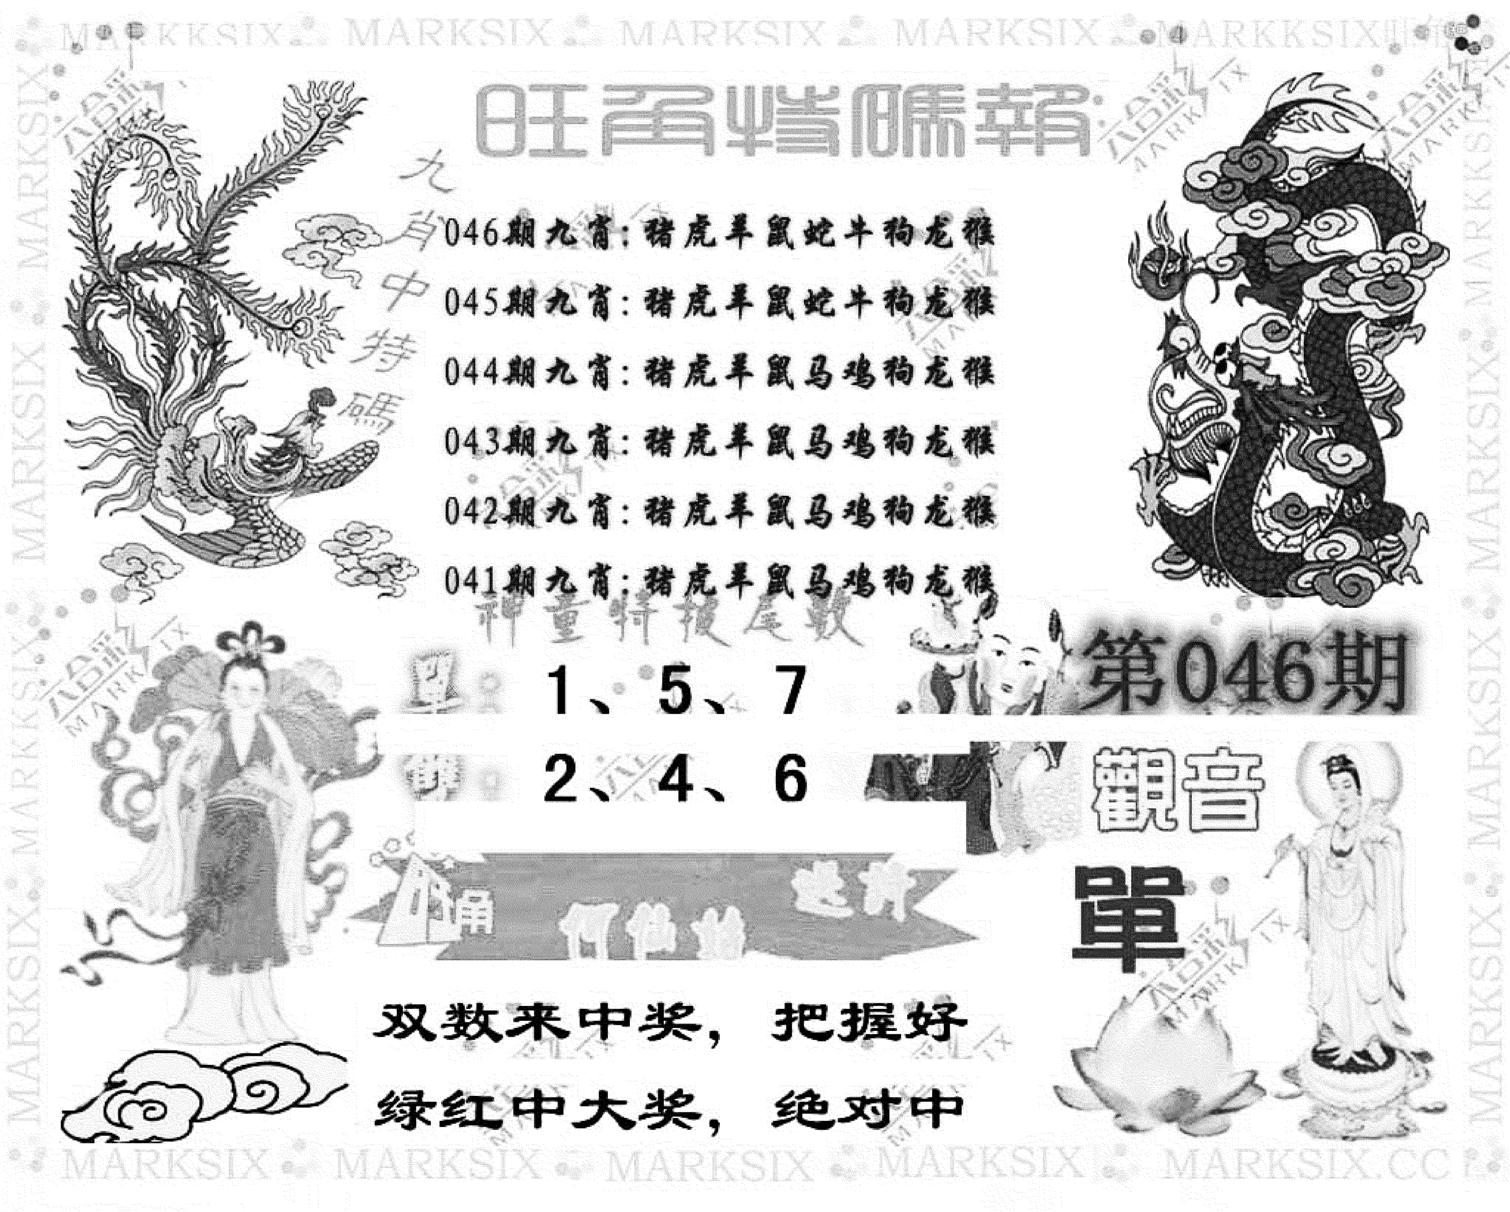 MARKKSIX MARKSIX MARKSIX MARKSIX MARKKSIX
旺角特碼報
九肖中特碼
046期九肖:猪虎羊鼠蛇牛狗龙猴
045期九肖:猪虎羊鼠蛇牛狗龙猴
044期九肖:猪虎羊鼠马鸡狗龙猴
043期九肖:猪虎羊鼠马鸡狗龙猴
042期九肖:猪虎羊鼠马鸡狗龙猴
041期九肖:猪虎羊鼠马鸡狗龙猴
神童特报尾数
單: 1、5、7
第046期
雙: 2、4、6
觀音
旺角
單
双数来中奖，把握好
绿红中大奖，绝对中
MARKSIX MARKSIX MARKSIX MARKSIX MARKSIX.CC